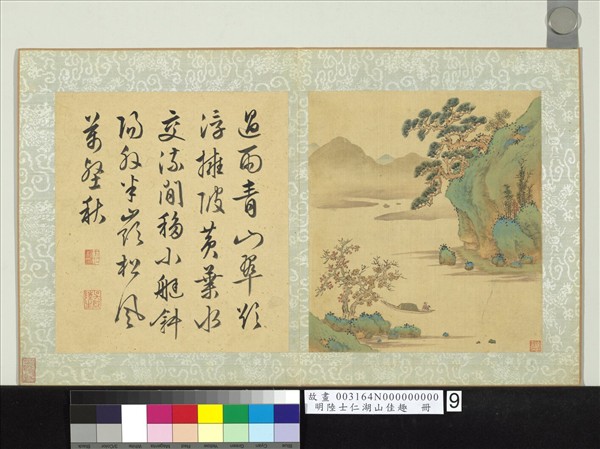 過雨青山翠欲
浮擁陂黃葉水
交流閒移小艇斜
陽外半嶺松風
萬壑秋
故畫 003164N000000000
明陸士仁湖山佳趣 冊
9